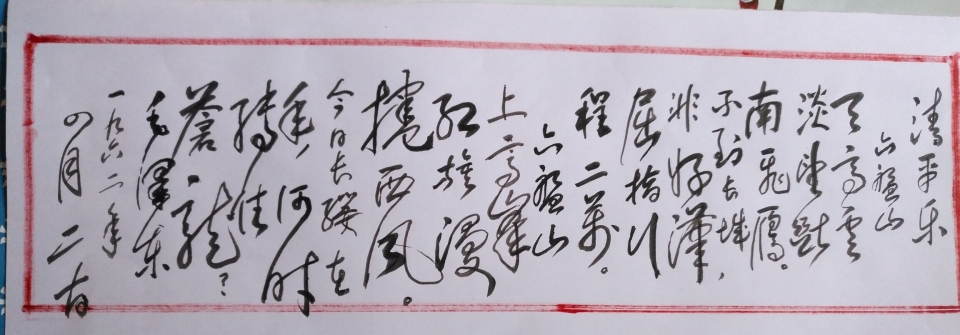 清平乐
六盤山
天高雲
淡望断
南飛雁。
不到长城
非好漢，
屈指行
程二萬。
六盤山
上高峯
红旗漫
捲西风。
今日长缨在
手，何时
缚住
蒼龍？
毛澤东
一九六二年
四月二十日